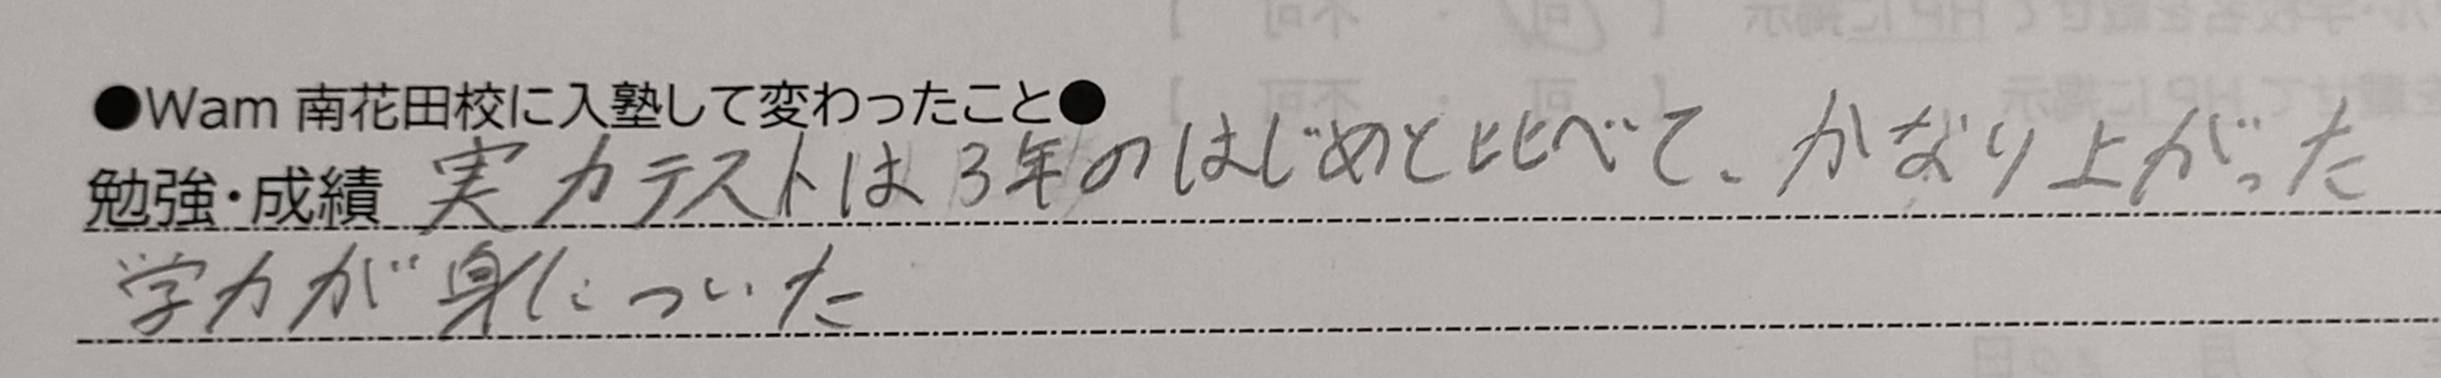 ●Wam 南花田校に入塾して変わったこと●
勉強・成績 実力テストは3年のはじめと比べて、かなり上がった
学力が身についた